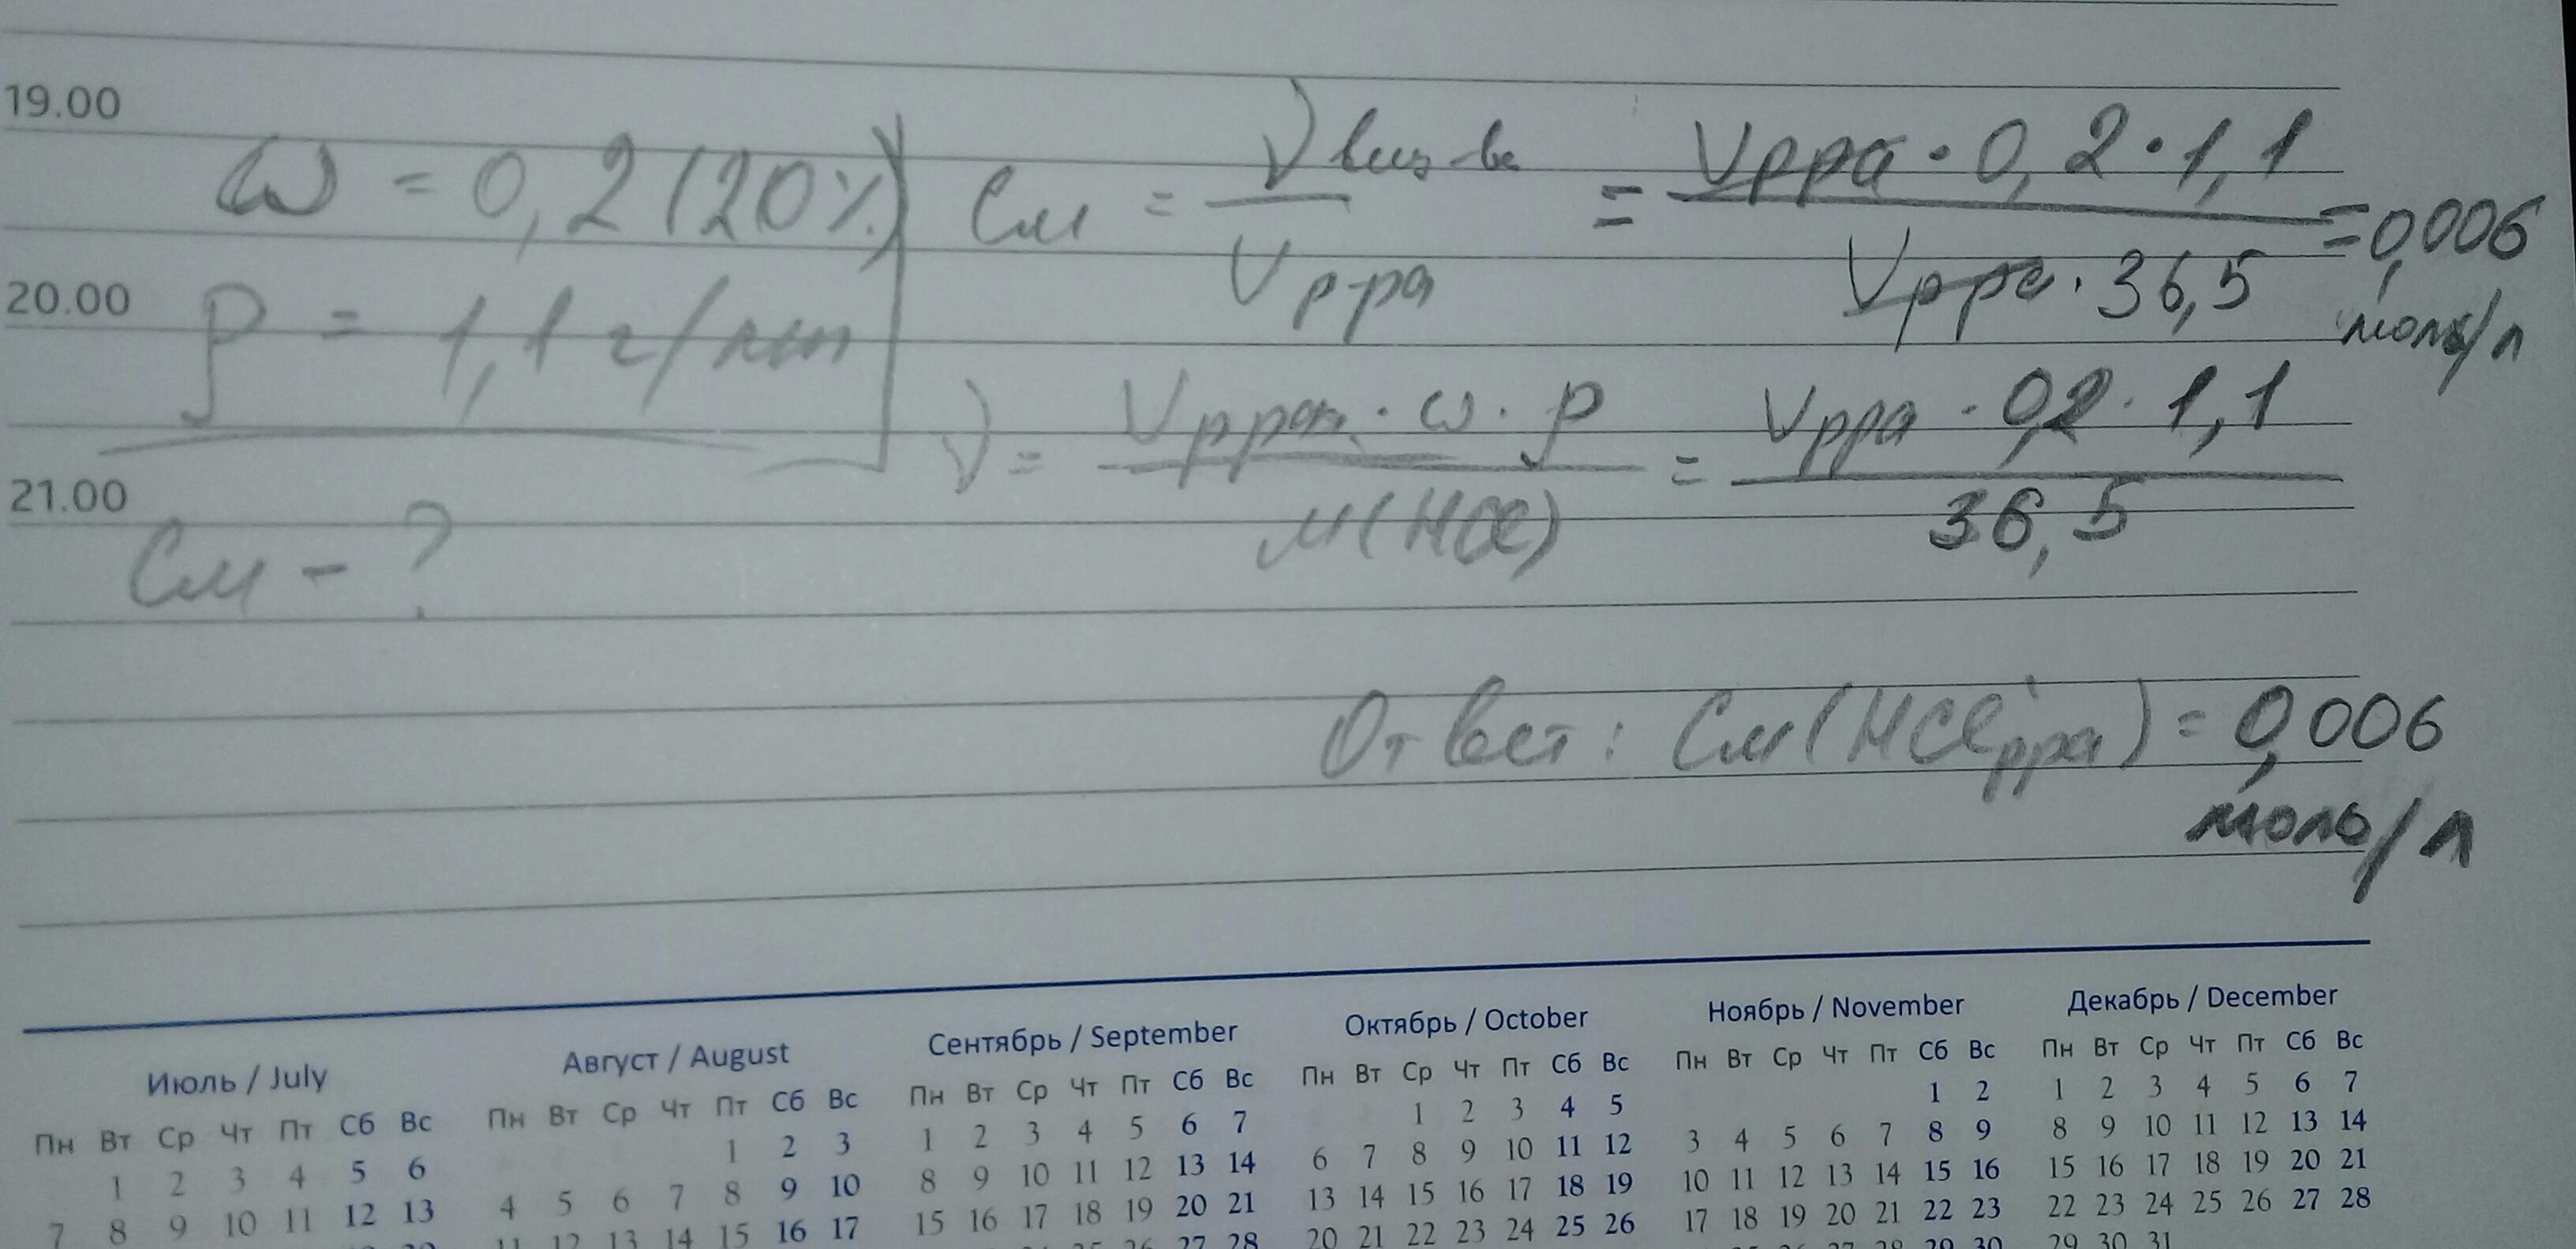 19.00
ω = 0,2 (20%) См = ν вещ-ва / V р-ра = Vрра · 0,2 · 1,1 / Vрра · 36,5 = 0,006 моль/л
20.00
ρ = 1,1 г/мл
ν = Vрра · ω · ρ / M(HCl) = Vрра · 0,2 · 1,1 / 36,5
21.00
См - ?
Ответ: См (HCl рра) = 0,006
моль/л
Июль / July
Пн Вт Ср Чт Пт Сб Вс
1 2 3 4 5 6
7 8 9 10 11 12 13
Август / August
Пн Вт Ср Чт Пт Сб Вс
1 2 3
4 5 6 7 8 9 10
11 12 13 14 15 16 17
Сентябрь / September
Пн Вт Ср Чт Пт Сб Вс
1 2 3 4 5 6 7
8 9 10 11 12 13 14
15 16 17 18 19 20 21
27 28
Октябрь / October
Пн Вт Ср Чт Пт Сб Вс
1 2 3 4 5
6 7 8 9 10 11 12
13 14 15 16 17 18 19
20 21 22 23 24 25 26
Ноябрь / November
Пн Вт Ср Чт Пт Сб Вс
1 2
3 4 5 6 7 8 9
10 11 12 13 14 15 16
17 18 19 20 21 22 23
27 28 29 30
Декабрь / December
Пн Вт Ср Чт Пт Сб Вс
1 2 3 4 5 6 7
8 9 10 11 12 13 14
15 16 17 18 19 20 21
22 23 24 25 26 27 28
29 30 31